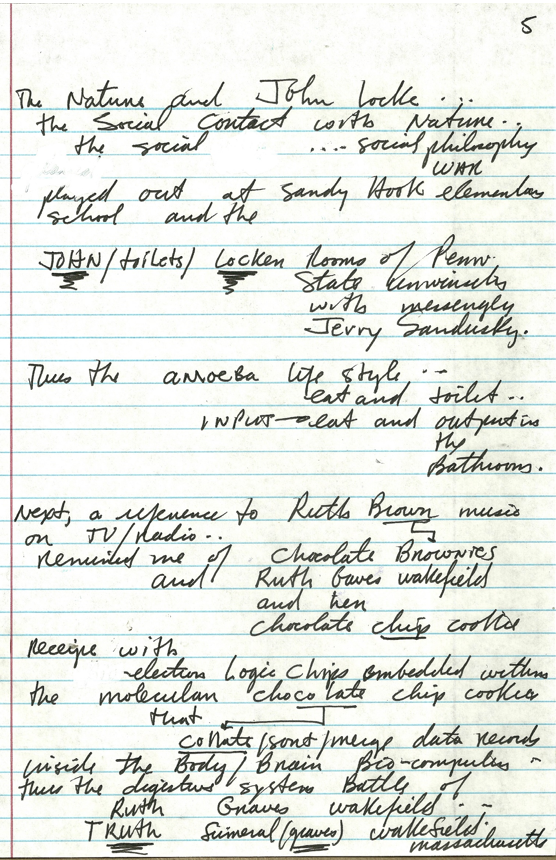 5
The Nature and John Locke ....
the Social Contact with Nature..
the social .... social philosophy
WAR
played out at Sandy Hook elementary
school and the
JOHN/toilets/ Locker Rooms of Penn.
State University
with messengly
Jerry Sandusky.
Thus the amoeba life style ...
eat and toilet..
INPUT→eat and output in
the
Bathroom.
Next, a reference to Ruth Brown music
on TV/radio..
Remined me of Chocolate Brownies
and Ruth Gaves wakefield
and her
chocolate chip cookie
Receipe with
electron Logic Chips embedded within
the molecular chocolate chip cookie
that
collate/sort/merge data records
inside the Body/Brain Bio-computer -
thus the digestive system Battle of
Ruth Graves wakefield ..
TRUTH Sumeral (graves) wakefield.
massachusetts